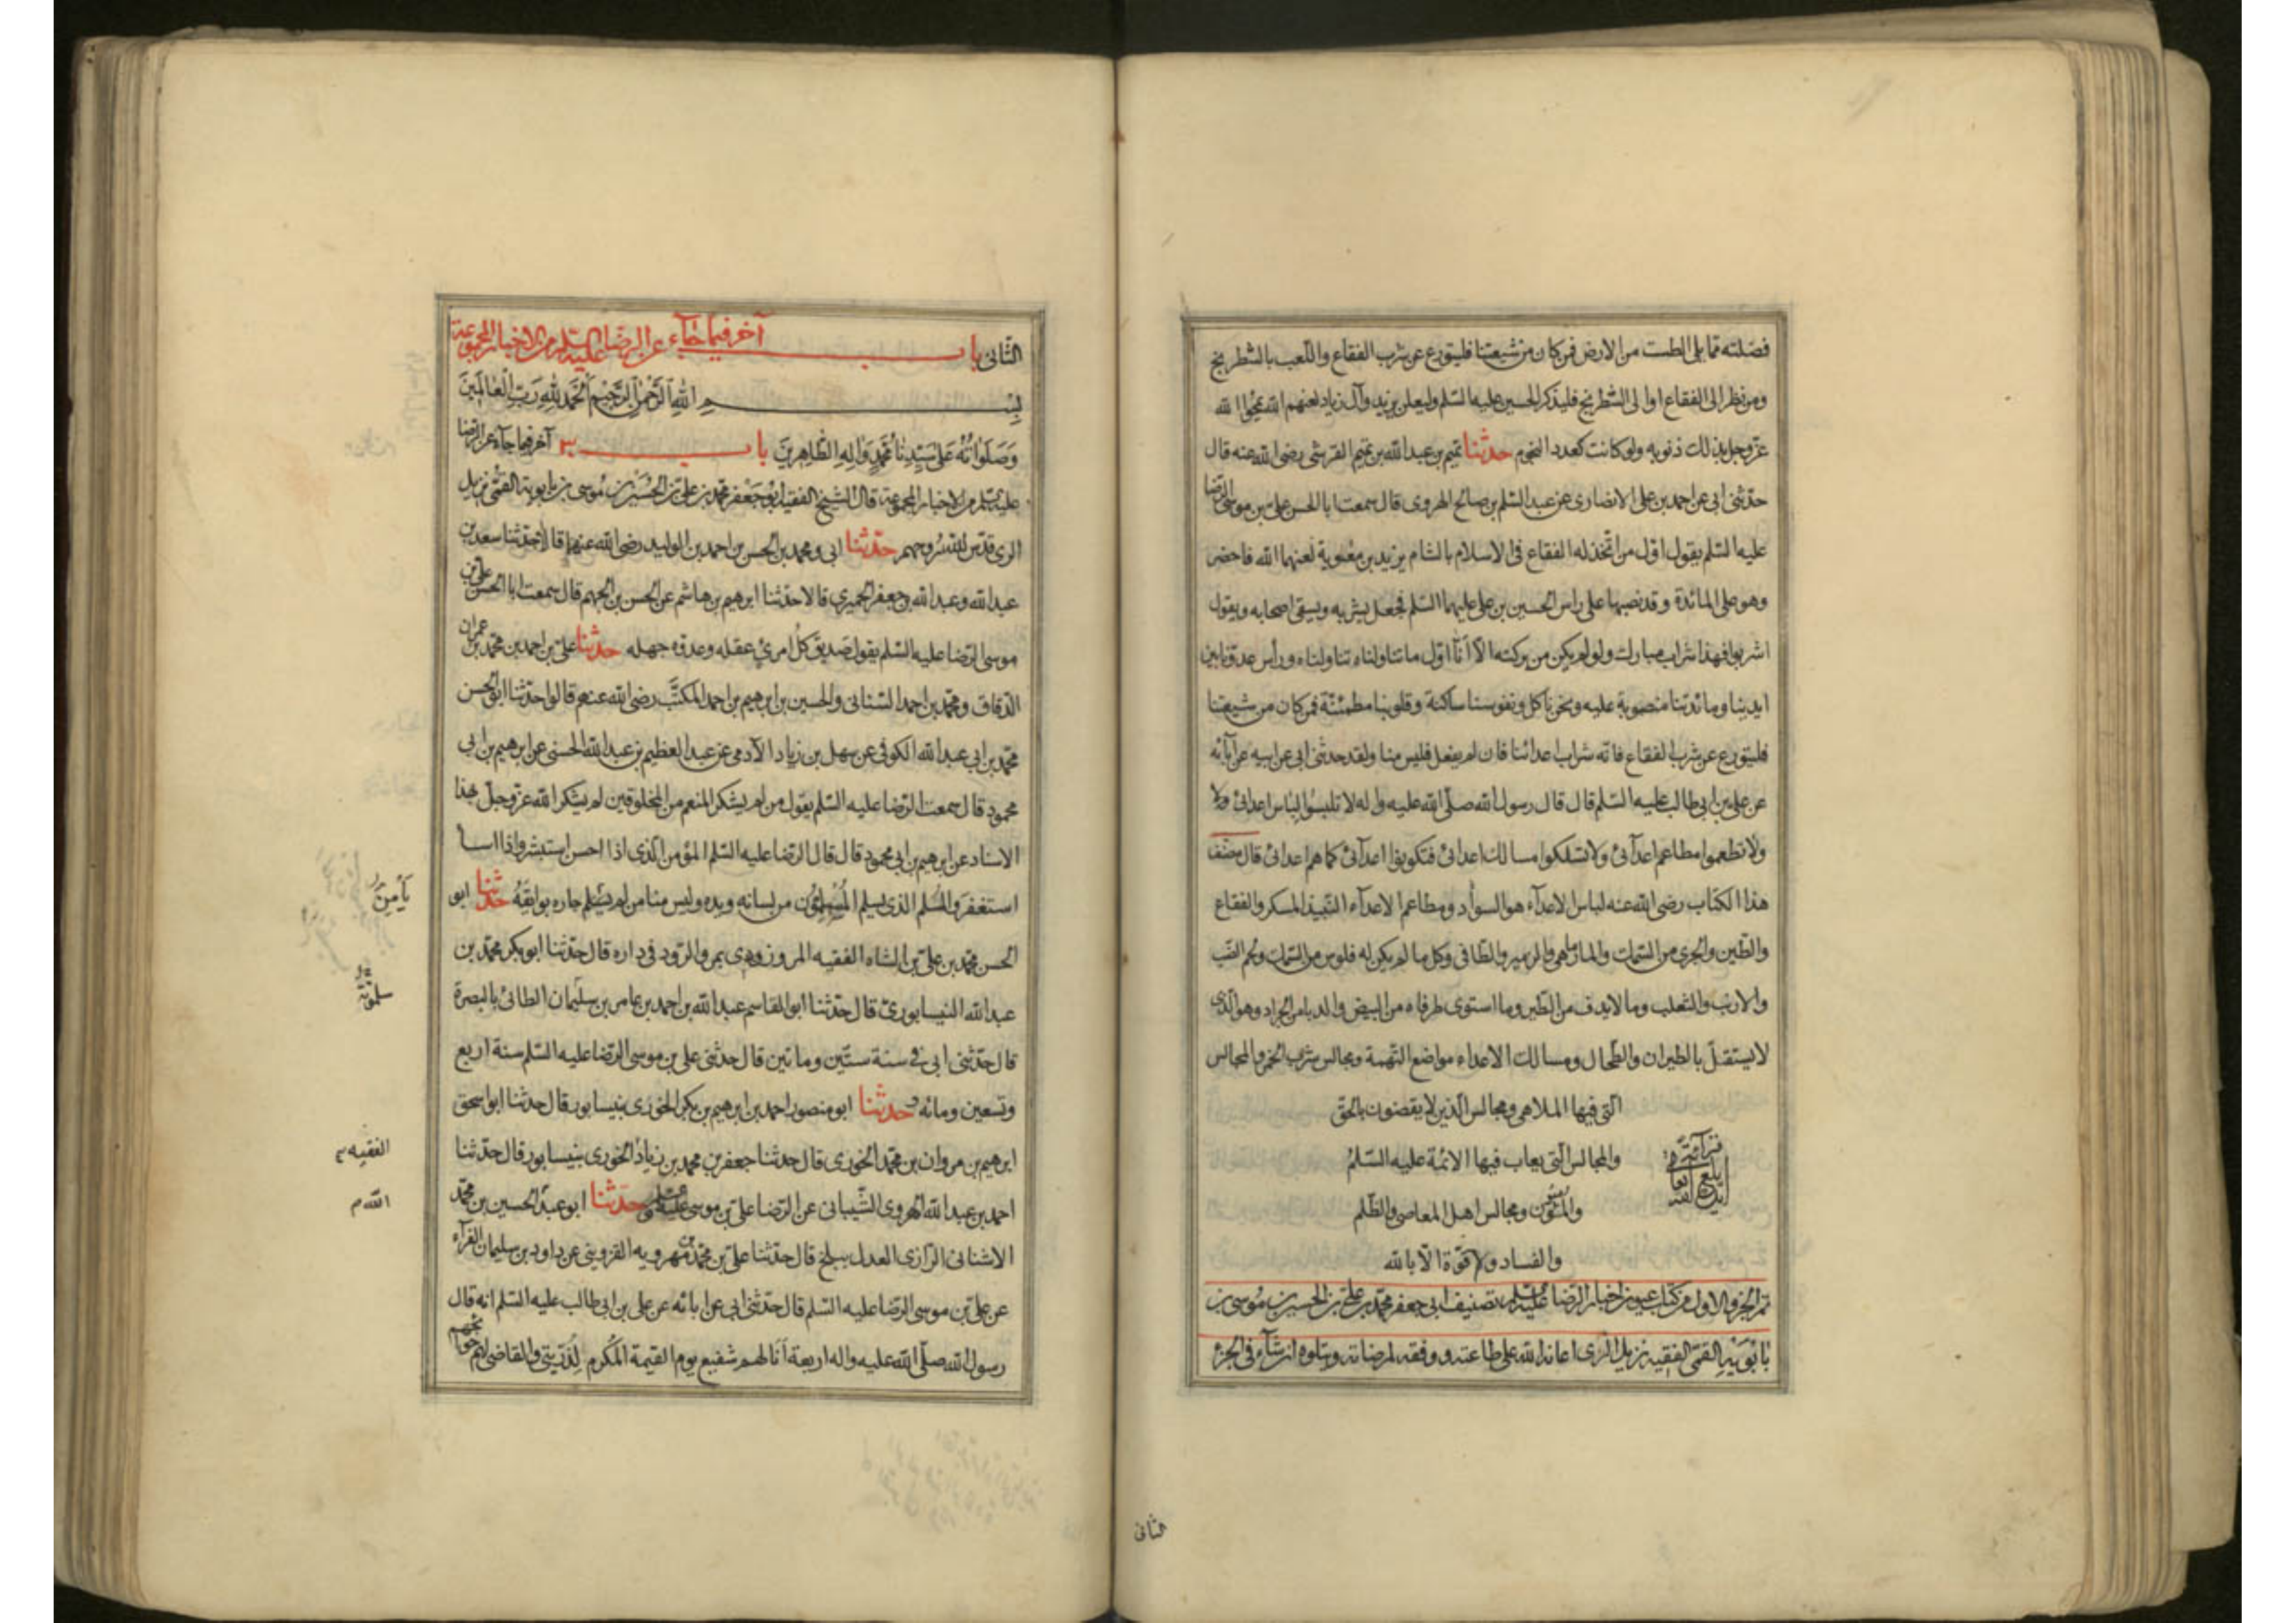 فضلته مما يلى الطست من الارض فمن كان من شيعتنا فليتورع عن شرب الفقاع واللعب بالشطرنج
ومن نظر الى الفقاع او الى الشطرنج فليذكر الحسين عليه السلم وليعلن يزيد وآل زياد لعنهم الله يمحوا الله
عز وجل بذلك ذنوبه ولو كانت كعدد النجوم حدثنا تميم بن عبد الله بن تميم القرشى رضى الله عنه قال
حدثنى ابى عن احمد بن على الانصارى عن عبد السلم بن صالح الهروى قال سمعت ابا الحسن على بن موسى الرضا
عليه السلم يقول اول من اتخذ له الفقاع فى الاسلام بالشام يزيد بن معوية لعنهما الله فاحضر
وهو على المائدة وقد نصبها على راس الحسين بن على عليهما السلم فجعل يشربه ويسقى اصحابه ويقول
اشربوا فهذا شراب مبارك ولو لم يكن من بركته الا انا اول ما تناولناه تناولناه ورأس عدونا بين
ايدينا ومائدتنا منصوبة عليه ونحن ناكل ونفوسنا ساكنة وقلوبنا مطمئنة فمن كان من شيعتنا
فليتورع عن شرب الفقاع فانه شراب اعدائنا فان لم يفعل فليس منا ولقد حدثنى ابى عن ابيه عن آبائه
عن على بن ابى طالب عليه السلم قال قال رسول الله صلى الله عليه واله لا تلبسوا لباس اعدائى ولا
ولا تطعموا مطاعم اعدآئى ولا تسلكوا مسالك اعدائى فتكونوا اعدآئى كما هم اعدائى قال مصنف
هذا الكتاب رضى الله عنه لباس الاعدآء هو السوأد ومطاعم الاعدآء النبيذ المسكر والفقاع
والطين والجرى من السمك والمارماهى والزمير والطافى وكل ما لم يكن له فلوس من السمك ولحم الضب
والارنب والثعلب وما لا يدف من الطير وما استوى طرفاه من البيض والدبا من الجراد وهو الذى
لا يستقل بالطيران والطحال ومسالك الاعداء مواضع التهمة ومجالس شرب الخمر والمجالس
التى فيها الملاهى ومجالس الذين لا يقضون بالحق
والمجالس التى يعاب فيها الائمة عليه السلم
والمؤمنون ومجالس اهل المعاصى والظلم
والفساد ولا قوة الا بالله
تم الجزو الاول من كتاب عيون اخبار الرضا عليه السلم تصنيف ابى جعفر محمد بن على بن الحسين بن موسى بن
بابويه القمى الفقيه نزيل الرى اعانه الله على طاعته ووفقه لمرضاته ويتلوه ان شآء فى الجزء
الثانى
الثانى باب آخر فيما جآء عن الرضا عليه السلم من الاخبار المجموعة
بسم الله الرحمن الرحيم الحمد لله رب العالمين
وصلواته على سيدنا محمد واله الطاهرين باب آخر فيما جآء عن الرضا
عليه السلم من الاخبار المجموعة قال الشيخ الفقيه ابو جعفر محمد بن على بن الحسين بن موسى بن بابويه القمى نزيل
الرى قدس الله روحهم حدثنا ابى ومحمد بن الحسن بن احمد بن الوليد رضى الله عنهما قالا حدثنا سعد بن
عبد الله وعبد الله بن جعفر الحميرى قالا حدثنا ابرهيم بن هاشم عن الحسن بن الجهم قال سمعت ابا الحسن على بن
موسى الرضا عليه السلم يقول صديق كل امرئ عقله وعدوه جهله حدثنا على بن احمد بن محمد بن عمران
الدقاق ومحمد بن احمد السنانى والحسين بن ابرهيم بن احمد المكتب رضى الله عنهم قالوا حدثنا ابو الحسن
محمد بن ابى عبد الله الكوفى عن سهل بن زياد الآدمى عن عبد العظيم بن عبد الله الحسنى عن ابرهيم بن ابى
محمود قال سمعت الرضا عليه السلم يقول من لم يشكر المنعم من المخلوقين لم يشكر الله عز وجل بهذا
الاسناد عن ابرهيم بن ابى محمود قال قال الرضا عليه السلم المؤمن الذى اذا احسن استبشر واذا اسا
استغفر والمسلم الذى يسلم المسلمون من لسانه ويده وليس منا من لم يسلم جاره بوايقه حدثنا ابو
يأمن
الحسن محمد بن على بن الشاه الفقيه المروزودى بمرو الرود فى داره قال حدثنا ابو بكر محمد بن
عبد الله النيسابورى قال حدثنا ابو القاسم عبد الله بن احمد بن عامر بن سليمان الطائى بالبصرة
قال حدثنى ابى فى سنة ستين وماتين قال حدثنى على بن موسى الرضا عليه السلم سنة اربع
وتسعين ومائه حدثنا ابو منصور احمد بن ابرهيم بن بكر الخورى بنيسابور قال حدثنا ابو اسحق
ابرهيم بن مروان بن محمد الخورى قال حدثنا جعفر بن محمد بن زياد الخورى بنيسابور قال حدثنا
الفقيه
احمد بن عبد الله الهروى الشيبانى عن الرضا على بن موسى عليه السلم وحدثنا ابو عبد الحسين بن محمد
الله
الاشنانى الرازى العدل ببلخ قال حدثنا على بن محمد بن مهرويه القزوينى عن داود بن سليمان الفرآء
عن على بن موسى الرضا عليه السلم قال حدثنى ابى عن ابائه عن على بن ابى طالب عليه السلم انه قال
رسول الله صلى الله عليه واله اربعة أنا لهم شفيع يوم القيمة المكرم لذريتى والقاضى لهم حوائجهم